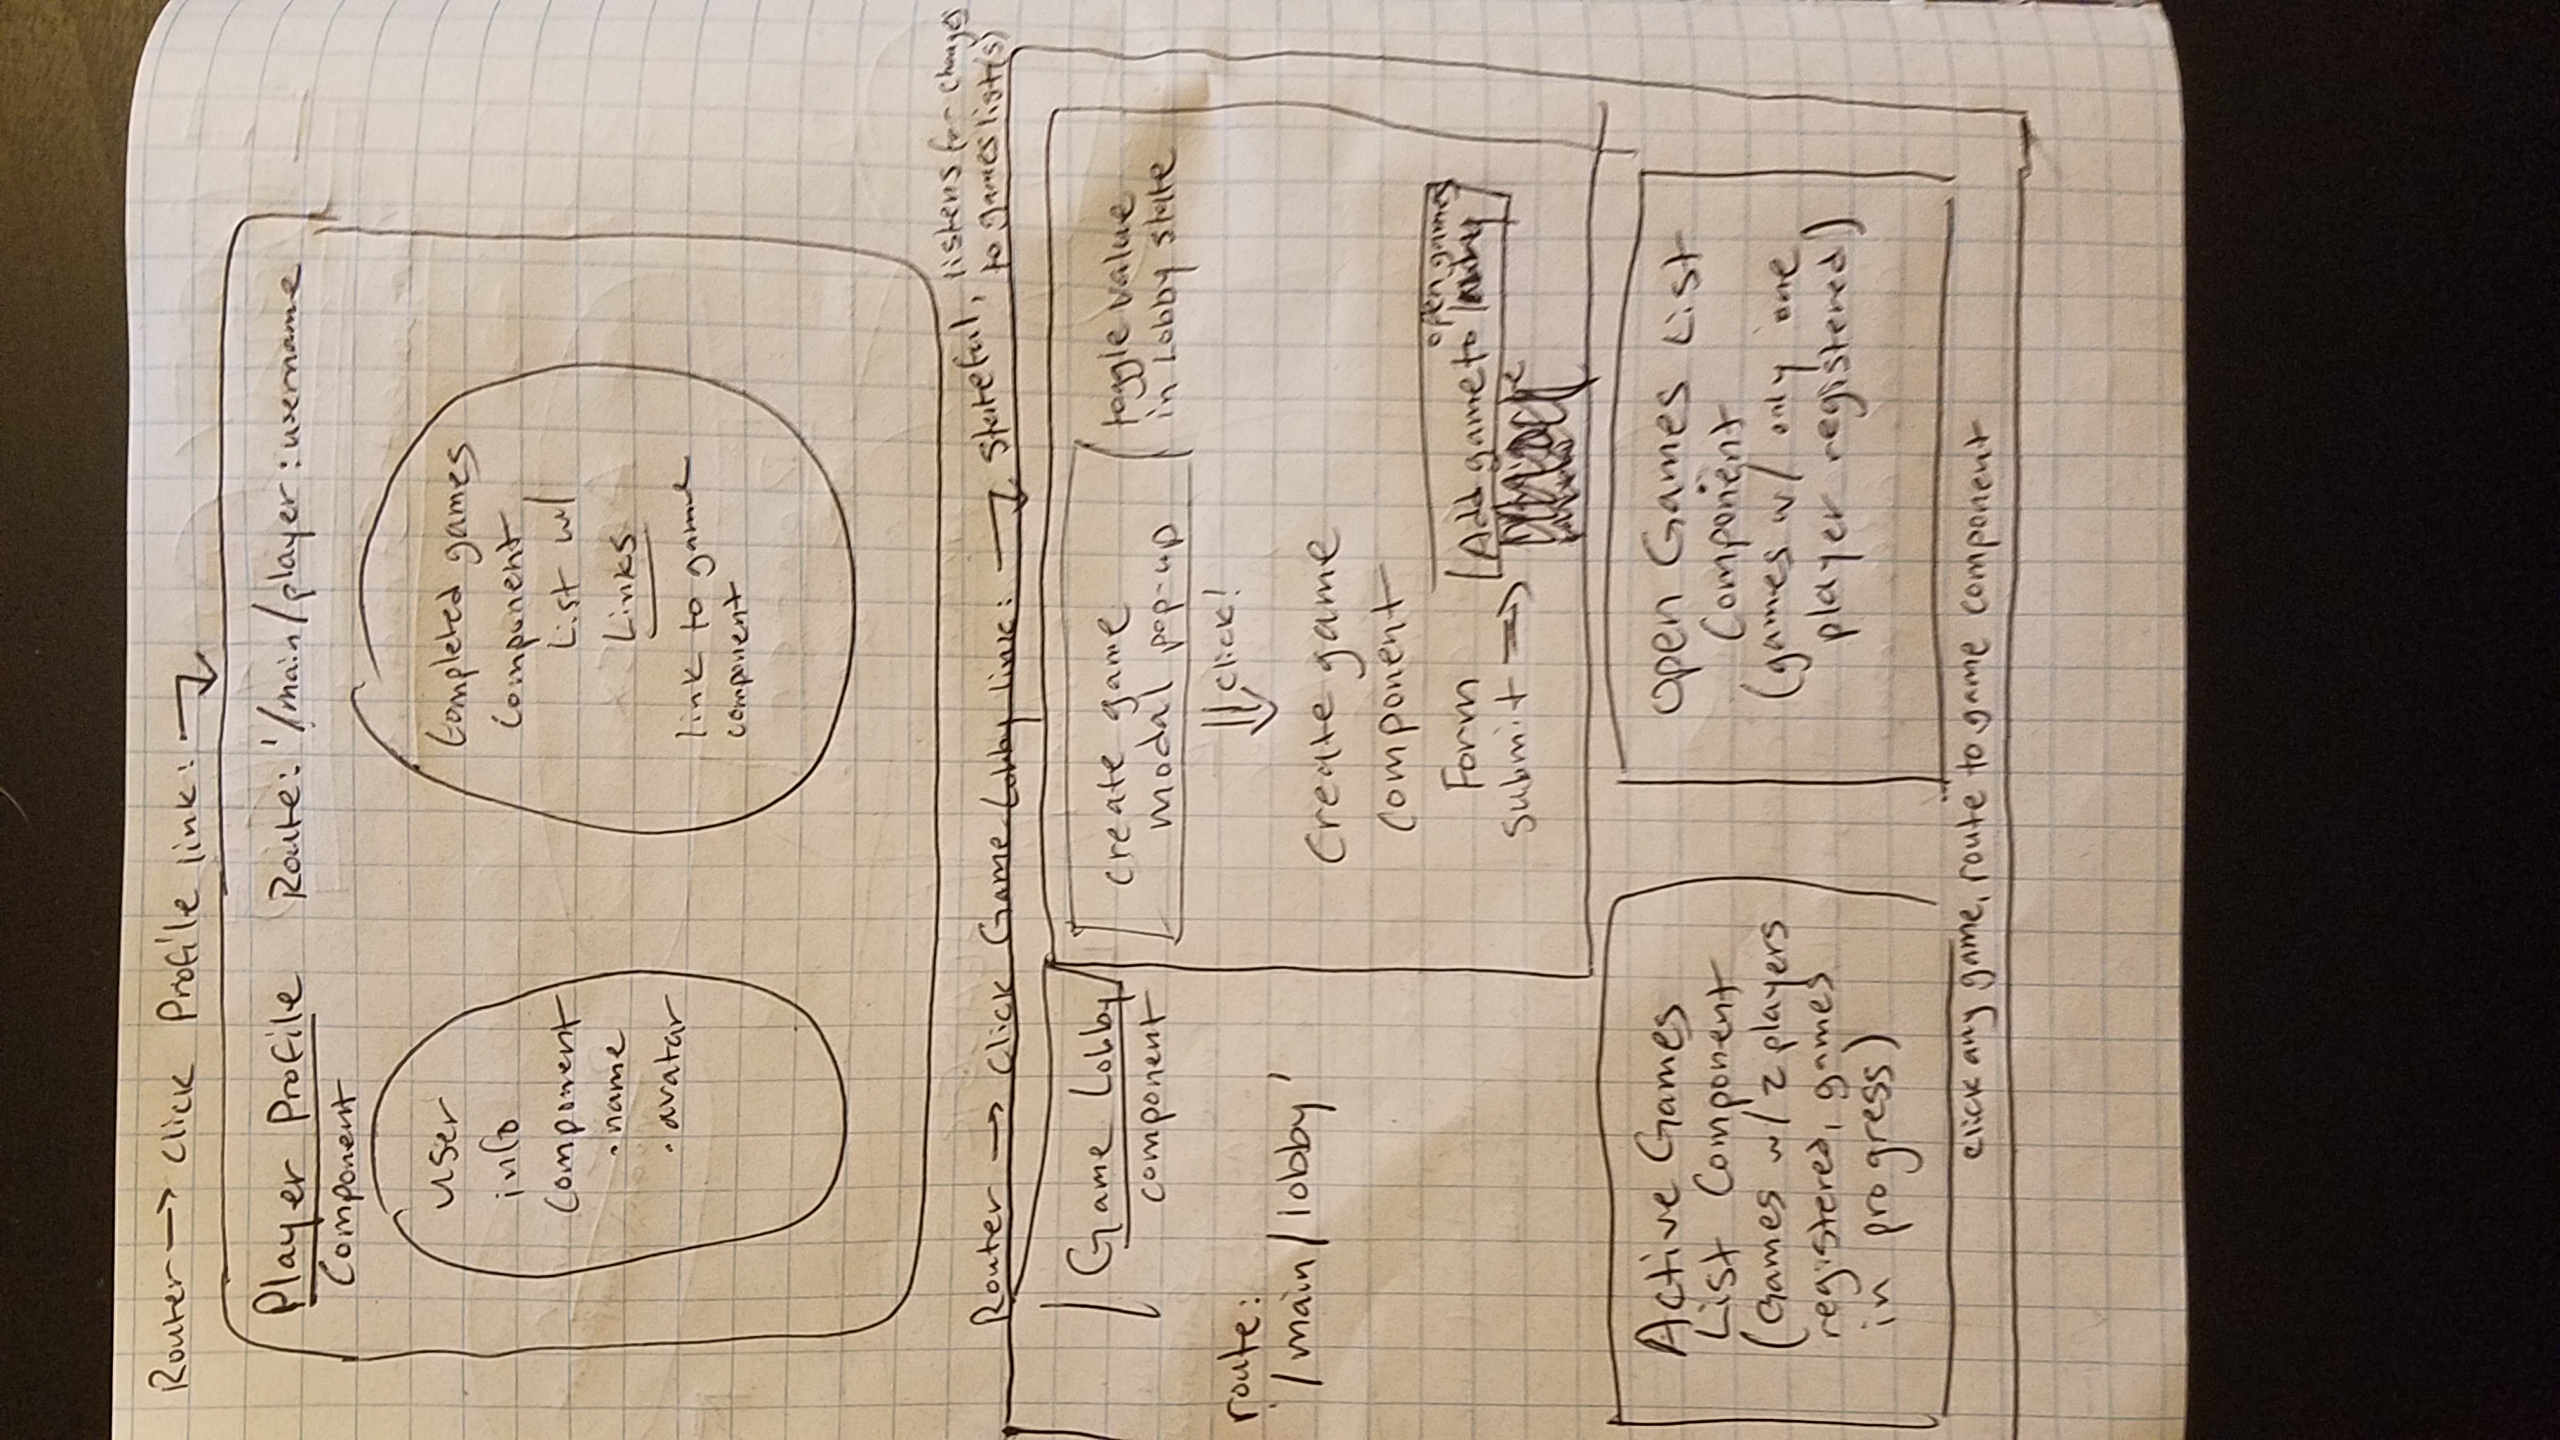 Router → click Profile link:
Player Profile
Component
Route: '/main/player:username
User
info
Component
• name
• avatar
Completed games
Component
List w/
Links
link to game
component
Router → Click Game Lobby link: → stateful, listens for changes
to games list(s)
Game Lobby
component
route:
'/main/lobby'
create game
modal pop-up
toggle value
in Lobby state
click!
Create game
Component
Form
submit →
Add game to
open games
Active Games
List Component
(Games w/ 2 players
registered, games
in progress)
Open Games List
Component
(games w/ only one
player registered)
click any game, route to game component